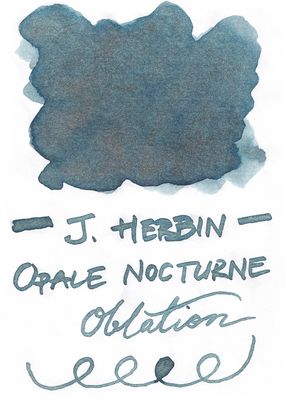 J. HERBIN
OPALE NOCTURNE
Oblation